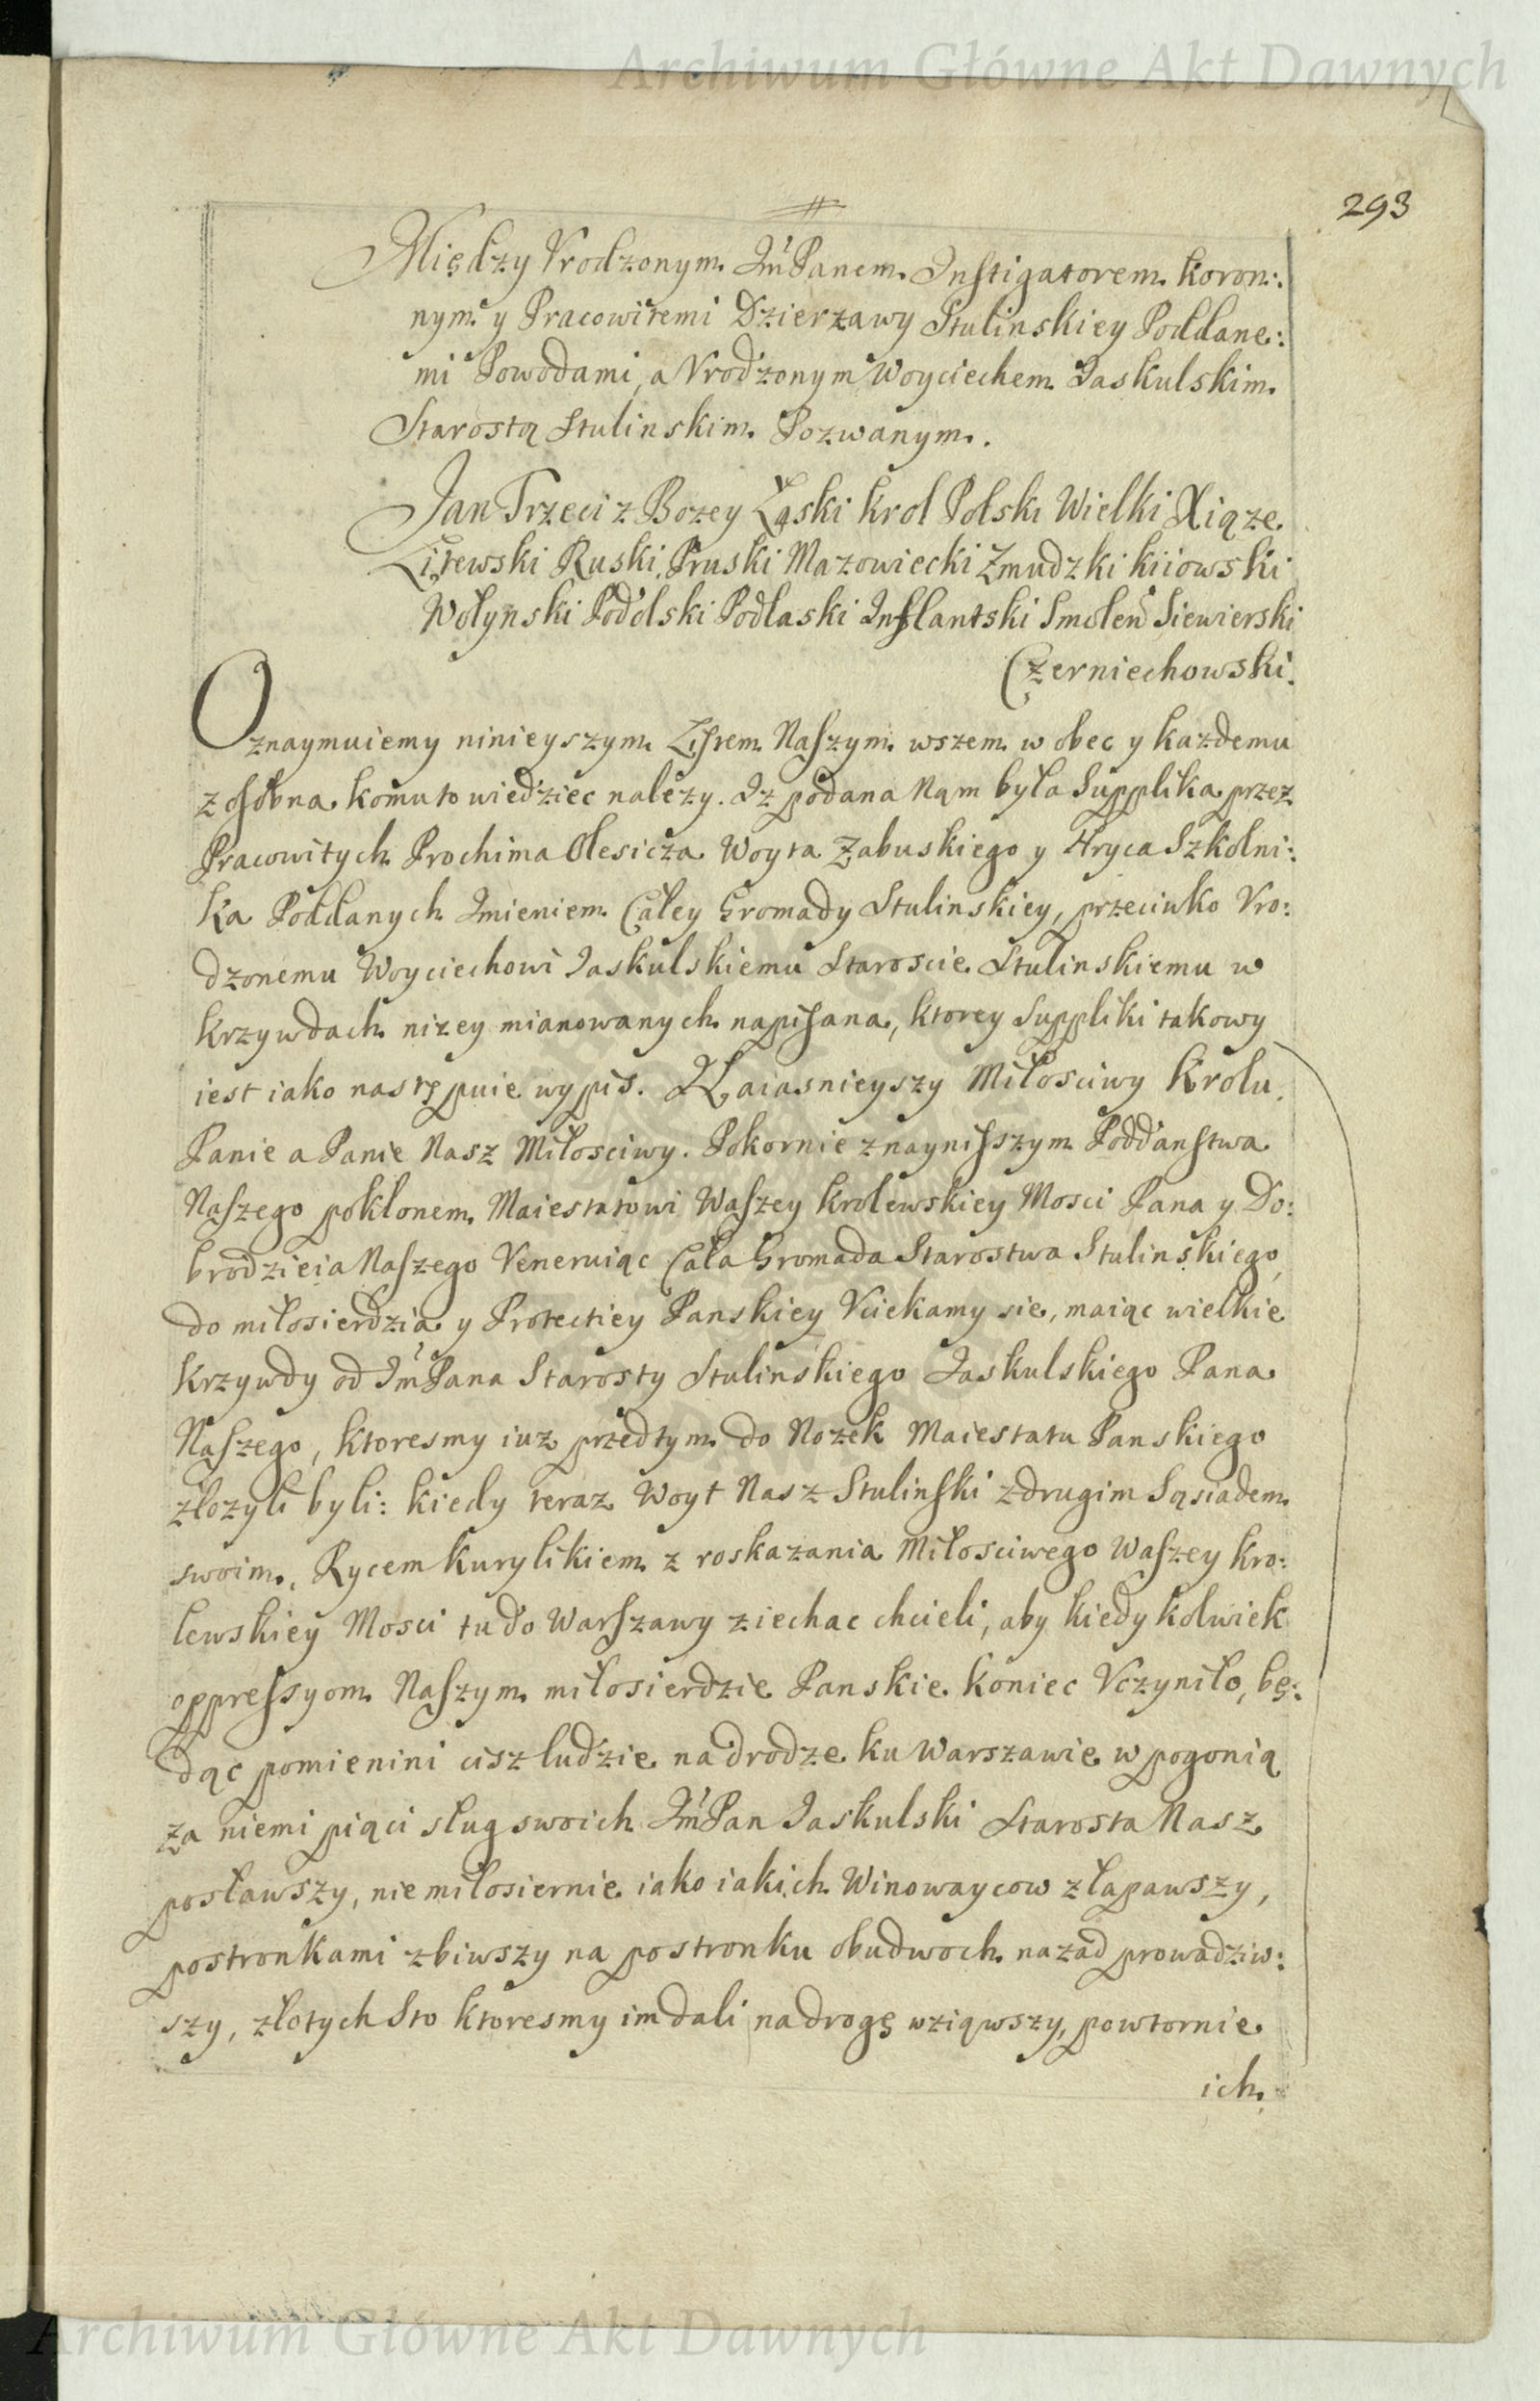 Archiwum Główne Akt Dawnych
293
Między Vrodzonym Jm̃ Panem Instigatorem koron:
nym y Pracowitemi Dzierzawy Stulinskiey Poddane:
mi Powodami, a Vrodzonym Woyciechem Jaskulskim
Starostą Stulinskim Pozwanym.
Jan Trzeci z Bozey Łaski krol Polski Wielki Xiąze
Litewski Ruski Pruski Mazowiecki Zmudzki kiiowski
Wołynski Podolski Podlaski Inflantski Smolen Siewierski
Czerniechowski.
Oznaymuiemy ninieyszym Listem Naszym wszem w obec y kazdemu
z osobna komu to wiedziec nalezy. Iz podana Nam była Supplika przez
Pracowitych Prochima Olesicza Woyta Zabuskiego y Hryca Szkolni:
ka Poddanych Imieniem Całey Gromady Stulinskiey, przeciwko Vro:
dzonemu Woyciechowi Jaskulskiemu Staroscie Stulinskiemu w
krzywdach nizey mianowanych napisana, ktorey Suppliki takowy
iest iako nastę puie wypis. Naiasnieyszy Miłosciwy Krolu
Panie a Panie Nasz Miłosciwy. Pokornie z naynisszym Poddanstwa
Naszego pokłonem Maiestatowi Waszey krolewskiey Mosci Pana y Do:
brodzieia Naszego Veneruiąc Cała Gromada Starostwa Stulinskiego,
do miłosierdzia y Protectiey Panskiey Vciekamy sie, maiąc wielkie
krzywdy od Jm̃ Pana Starosty Stulinskiego Jaskulskiego Pana
Naszego, ktoresmy iuz przedtym do Nozek Maiestatu Panskiego
złozyli byli: kiedy teraz Woyt Nasz Stulinski z drugim Sąsiadem
swoim, Rycem Kurylikiem z roskazania Miłosciwego Waszey kro:
lewskiey Mosci tu do Warszawy ziechac chcieli, aby kiedykolwiek
oppressyom Naszym miłosierdzie Panskie koniec Vczyniło, bę:
dąc pomienini cisz ludzie na drodze ku Warszawie w pogonią
za niemi piąci sług swoich Jm̃ Pan Jaskulski Starosta Nasz
posławszy, nie miłosiernie iako iakich Winowaycow złapawszy,
postronkami zbiwszy na postronku obudwoch nazad prowadziw:
szy, złotych Sto ktoresmy im dali na drogę wziąwszy, powtornie
ich
Archiwum Główne Akt Dawnych